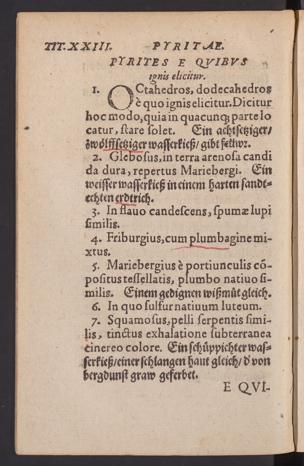 TIT. XXIII. PYRITAE.
PYRITES E QVIBVS
ignis elicitur.
1. OCtahedros, dodecahedros
è quo ignis elicitur. Dicitur
hoc modo, quia in quacunq; parte lo
catur, stare solet. Ein achtsetziger/
zwölffsetziger wasserkieß/ gibt fewr.
2. Globosus, in terra arenosa candi
da dura, repertus Mariebergi. Ein
weisser wasserkieß in einem harten sandt-
echten erdtrich.
3. In flauo candescens, spumæ lupi
similis.
4. Friburgius, cum plumbagine mi-
xtus.
5. Mariebergius è portiunculis cō-
positus tessellatis, plumbo natiuo si-
milis. Einem gedignen wißmüt gleich.
6. In quo sulfur natiuum luteum.
7. Squamosus, pelli serpentis simi-
lis, tinctus exhalatione subterranea
cinereo colore. Ein schüppichter was-
serkieß/ einer schlangen haut gleich/ d' von
bergdunst graw geferbet.
E QVI-